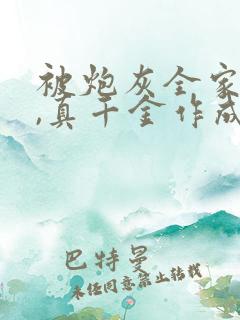 被炮灰全家
,真千金作成
巴特曼
未经同意禁止转载